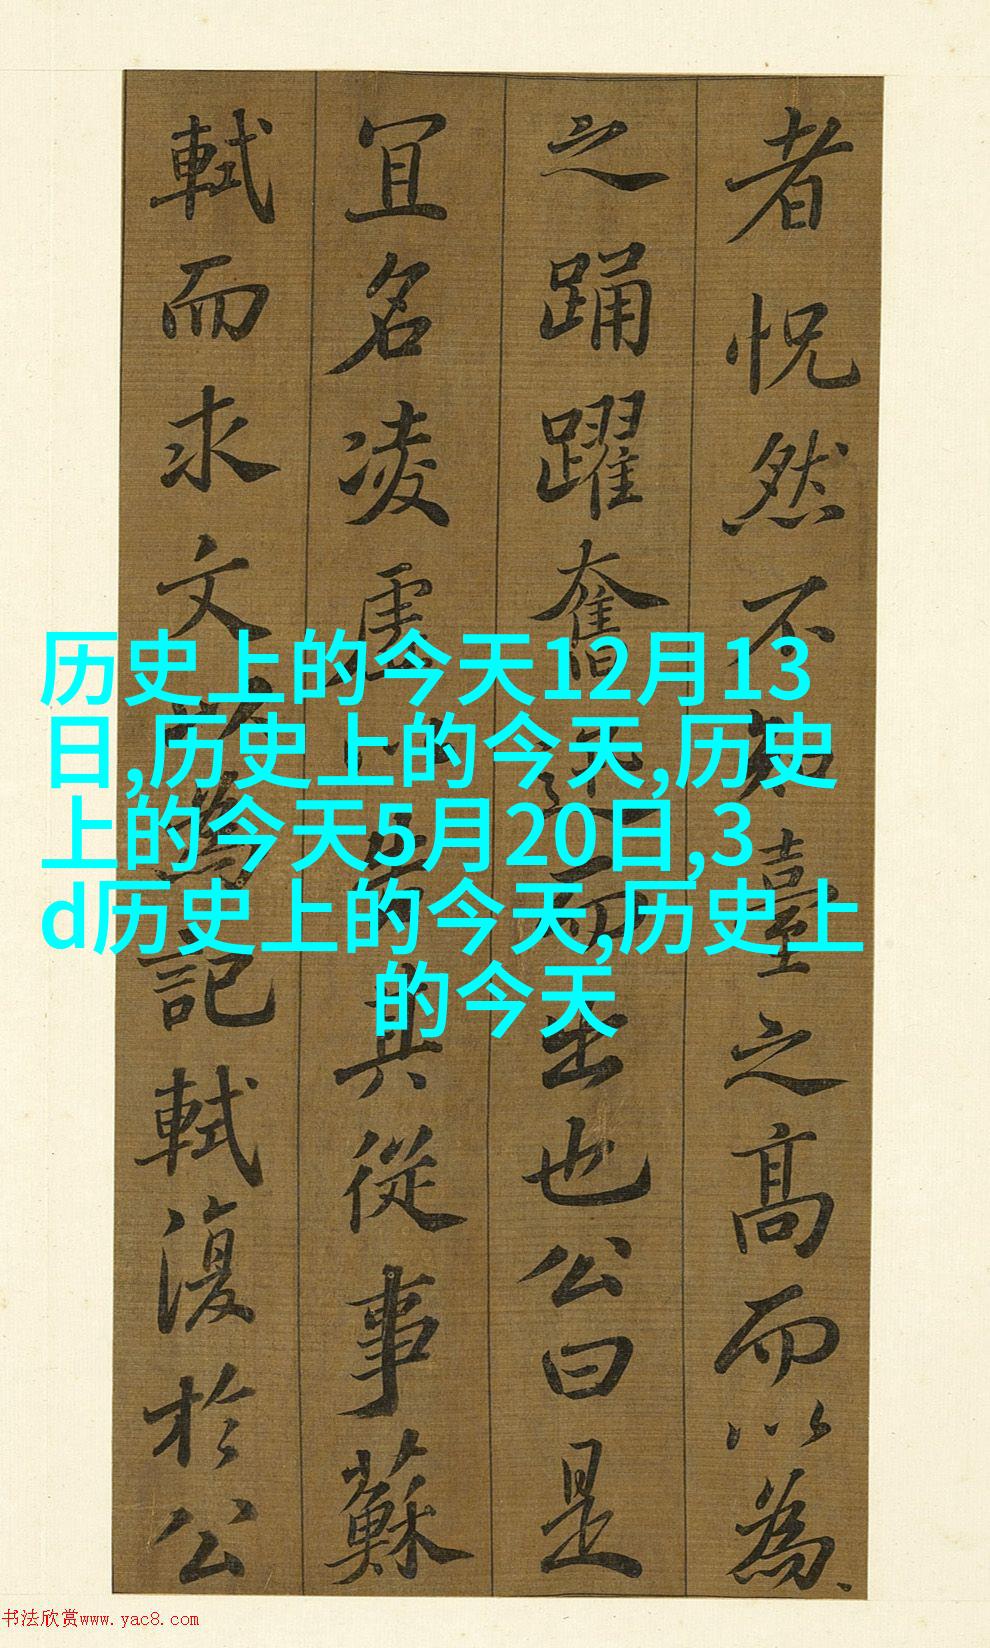 者怳然不知臺之高而以為
之踴躍奮迅而出也公曰是
宜名凌虛以告其從事蘇
軾而求文以為記軾復於公
历史上的今天12月13
日,历史上的今天,历史
上的今天5月20日,3
d历史上的今天,历史上
的今天
书法欣赏www.yac8.com